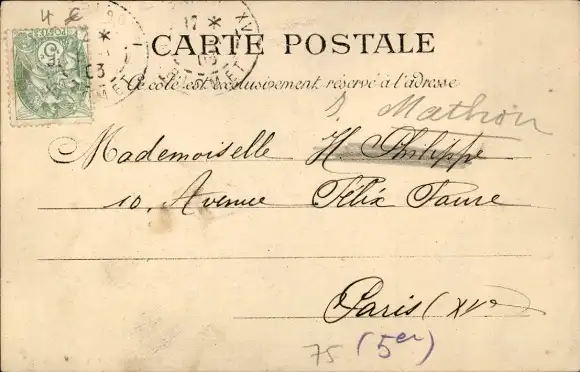 4 €
CARTE POSTALE
Ce côté est exclusivement réservé à l'adresse
Mathon
Mademoiselle H. Philippe
10, Avenue Félix Faure
Paris (XVe
75 (5er)